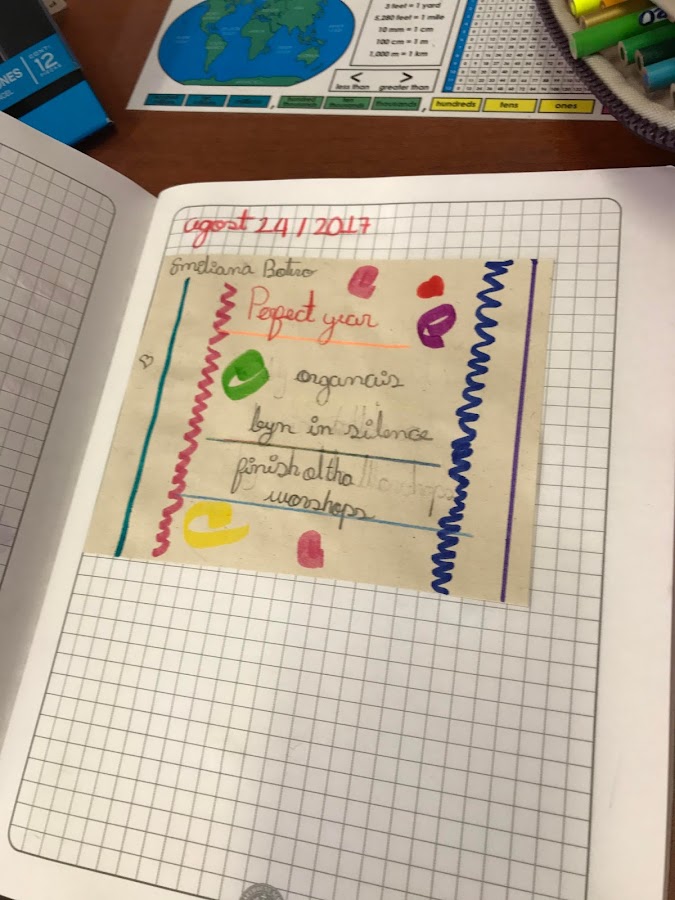 3 feet = 1 yard
5,280 feet = 1 mile
10 mm = 1 cm
100 cm = 1 m
1,000 m = 1 km
< >
less than greater than
hundreds tens ones
thousands
CONT:
12
agost 24 / 2017
Smeliana Botero
Perfect year
organais
byn in silence
finish oltha
worshops